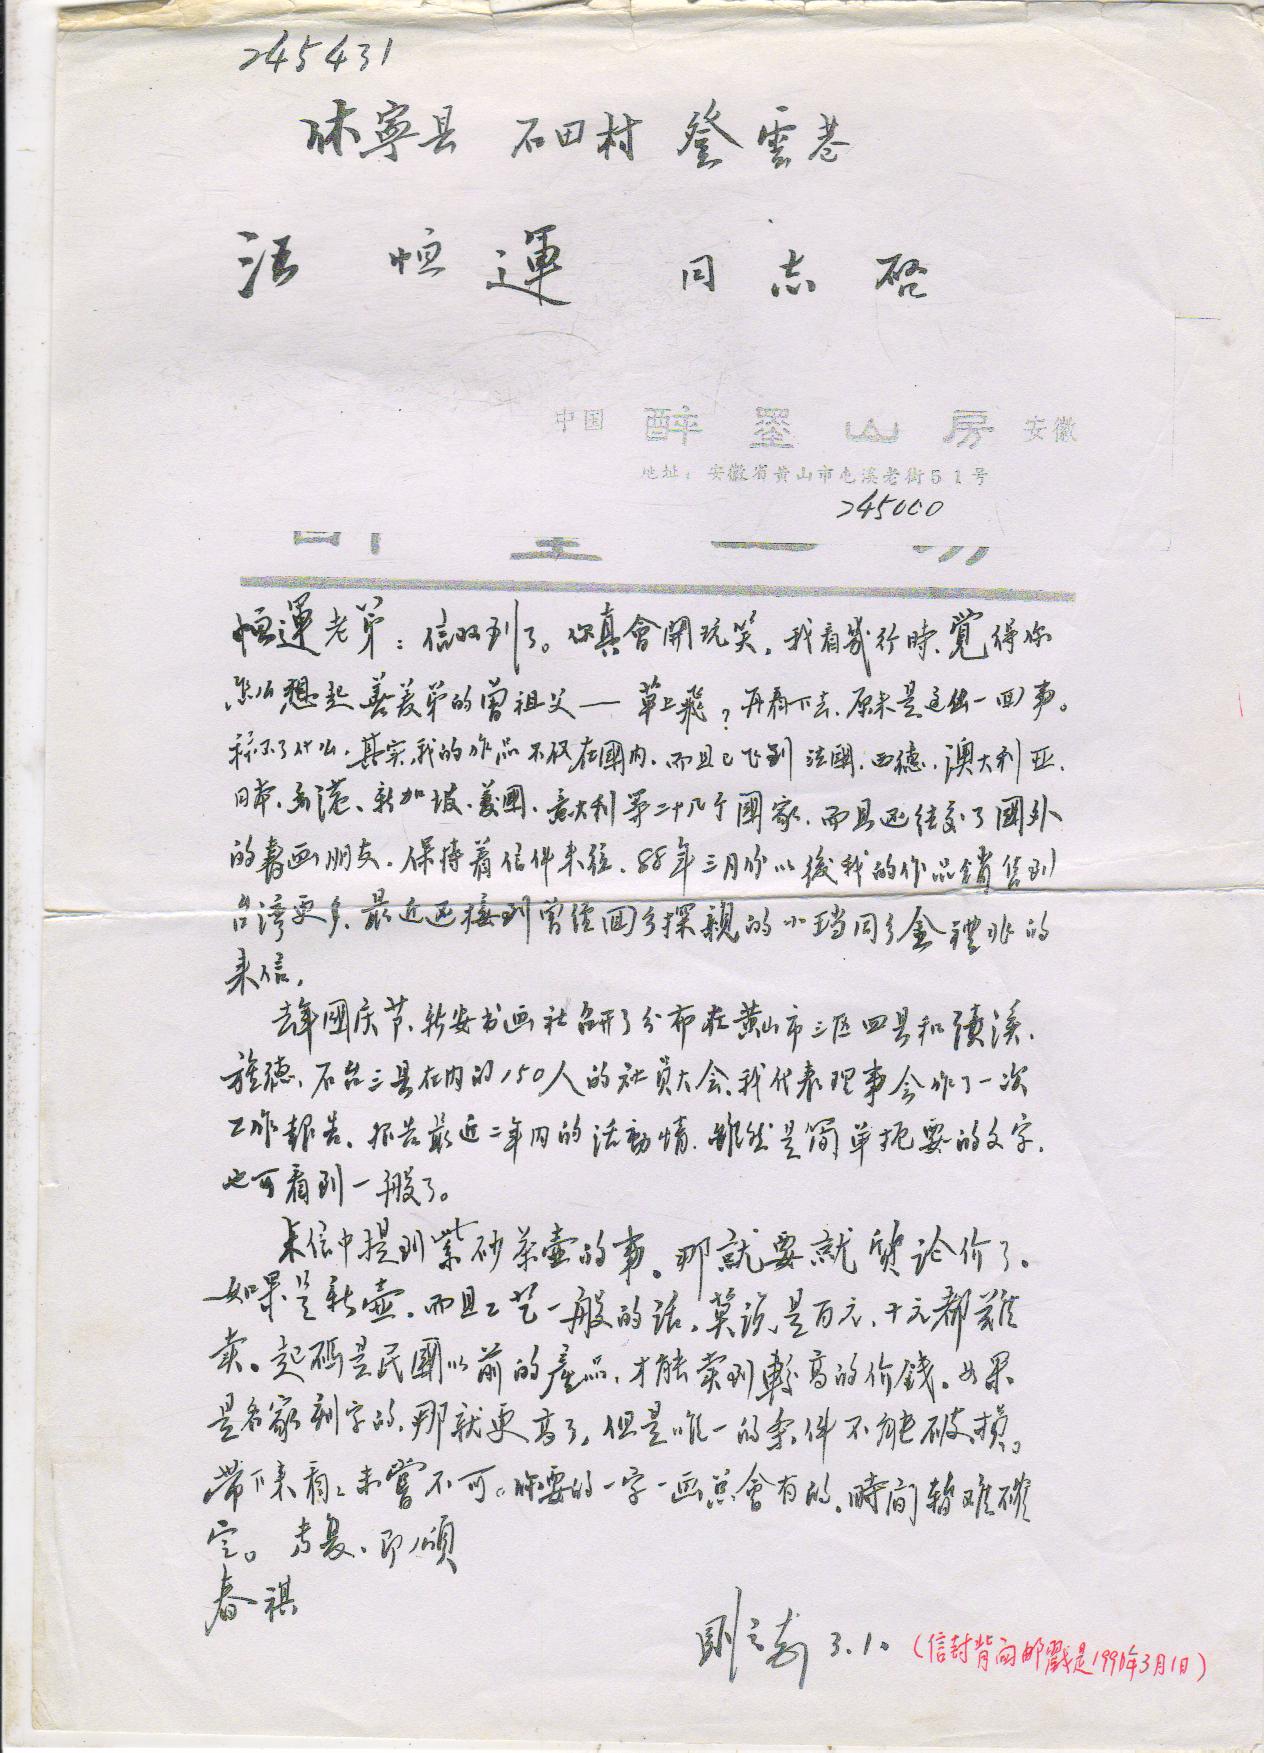 245431
休寧县 石田村 登雲巷
汪恒運 同志 啓
中国 醉墨山房 安徽
地址：安徽省黄山市屯溪老街51号
245000
恒運老弟：信收到了。你真會開玩笑，我看幾行時、覺得你
怎么想起善美弟的曾祖父——草上飛？再看下去，原来是這么一回事。
稱不了什么，其实我的作品不仅在國内，而且已飞到法國、西德、澳大利亚、
日本、香港、新加坡、美國、意大利等二十几个國家，而且还结交了國外
的書画朋友，保持着信件来往，88年三月份以後我的作品销售到
台湾更多，最近还接到曾经回乡探親的小珰同乡金禮兆的
来信。
去年國庆节、新安书画社召开了分布在黄山市三区四县和績溪、
旌德、石台三县在内的150人的社员大会，我代表理事会作了一次
工作報告、报告最近二年内的活動情，雖然是简单扼要的文字，
也可看到一般了。
来信中提到紫砂茶壶的事。那就要就货论价了。
如果是新壶，而且工艺一般的话，莫说是百元、十元都難
卖。起碼是民國以前的產品，才能卖到較高的价錢。如果
是名家刻字的，那就更高了，但是唯一的条件不能破損。
带下来看看未嘗不可。你要的一字一画总會有的，時间暂难確
定。专复、即頌
春祺
3.1.
（信封背面邮戳是1991年3月1日）